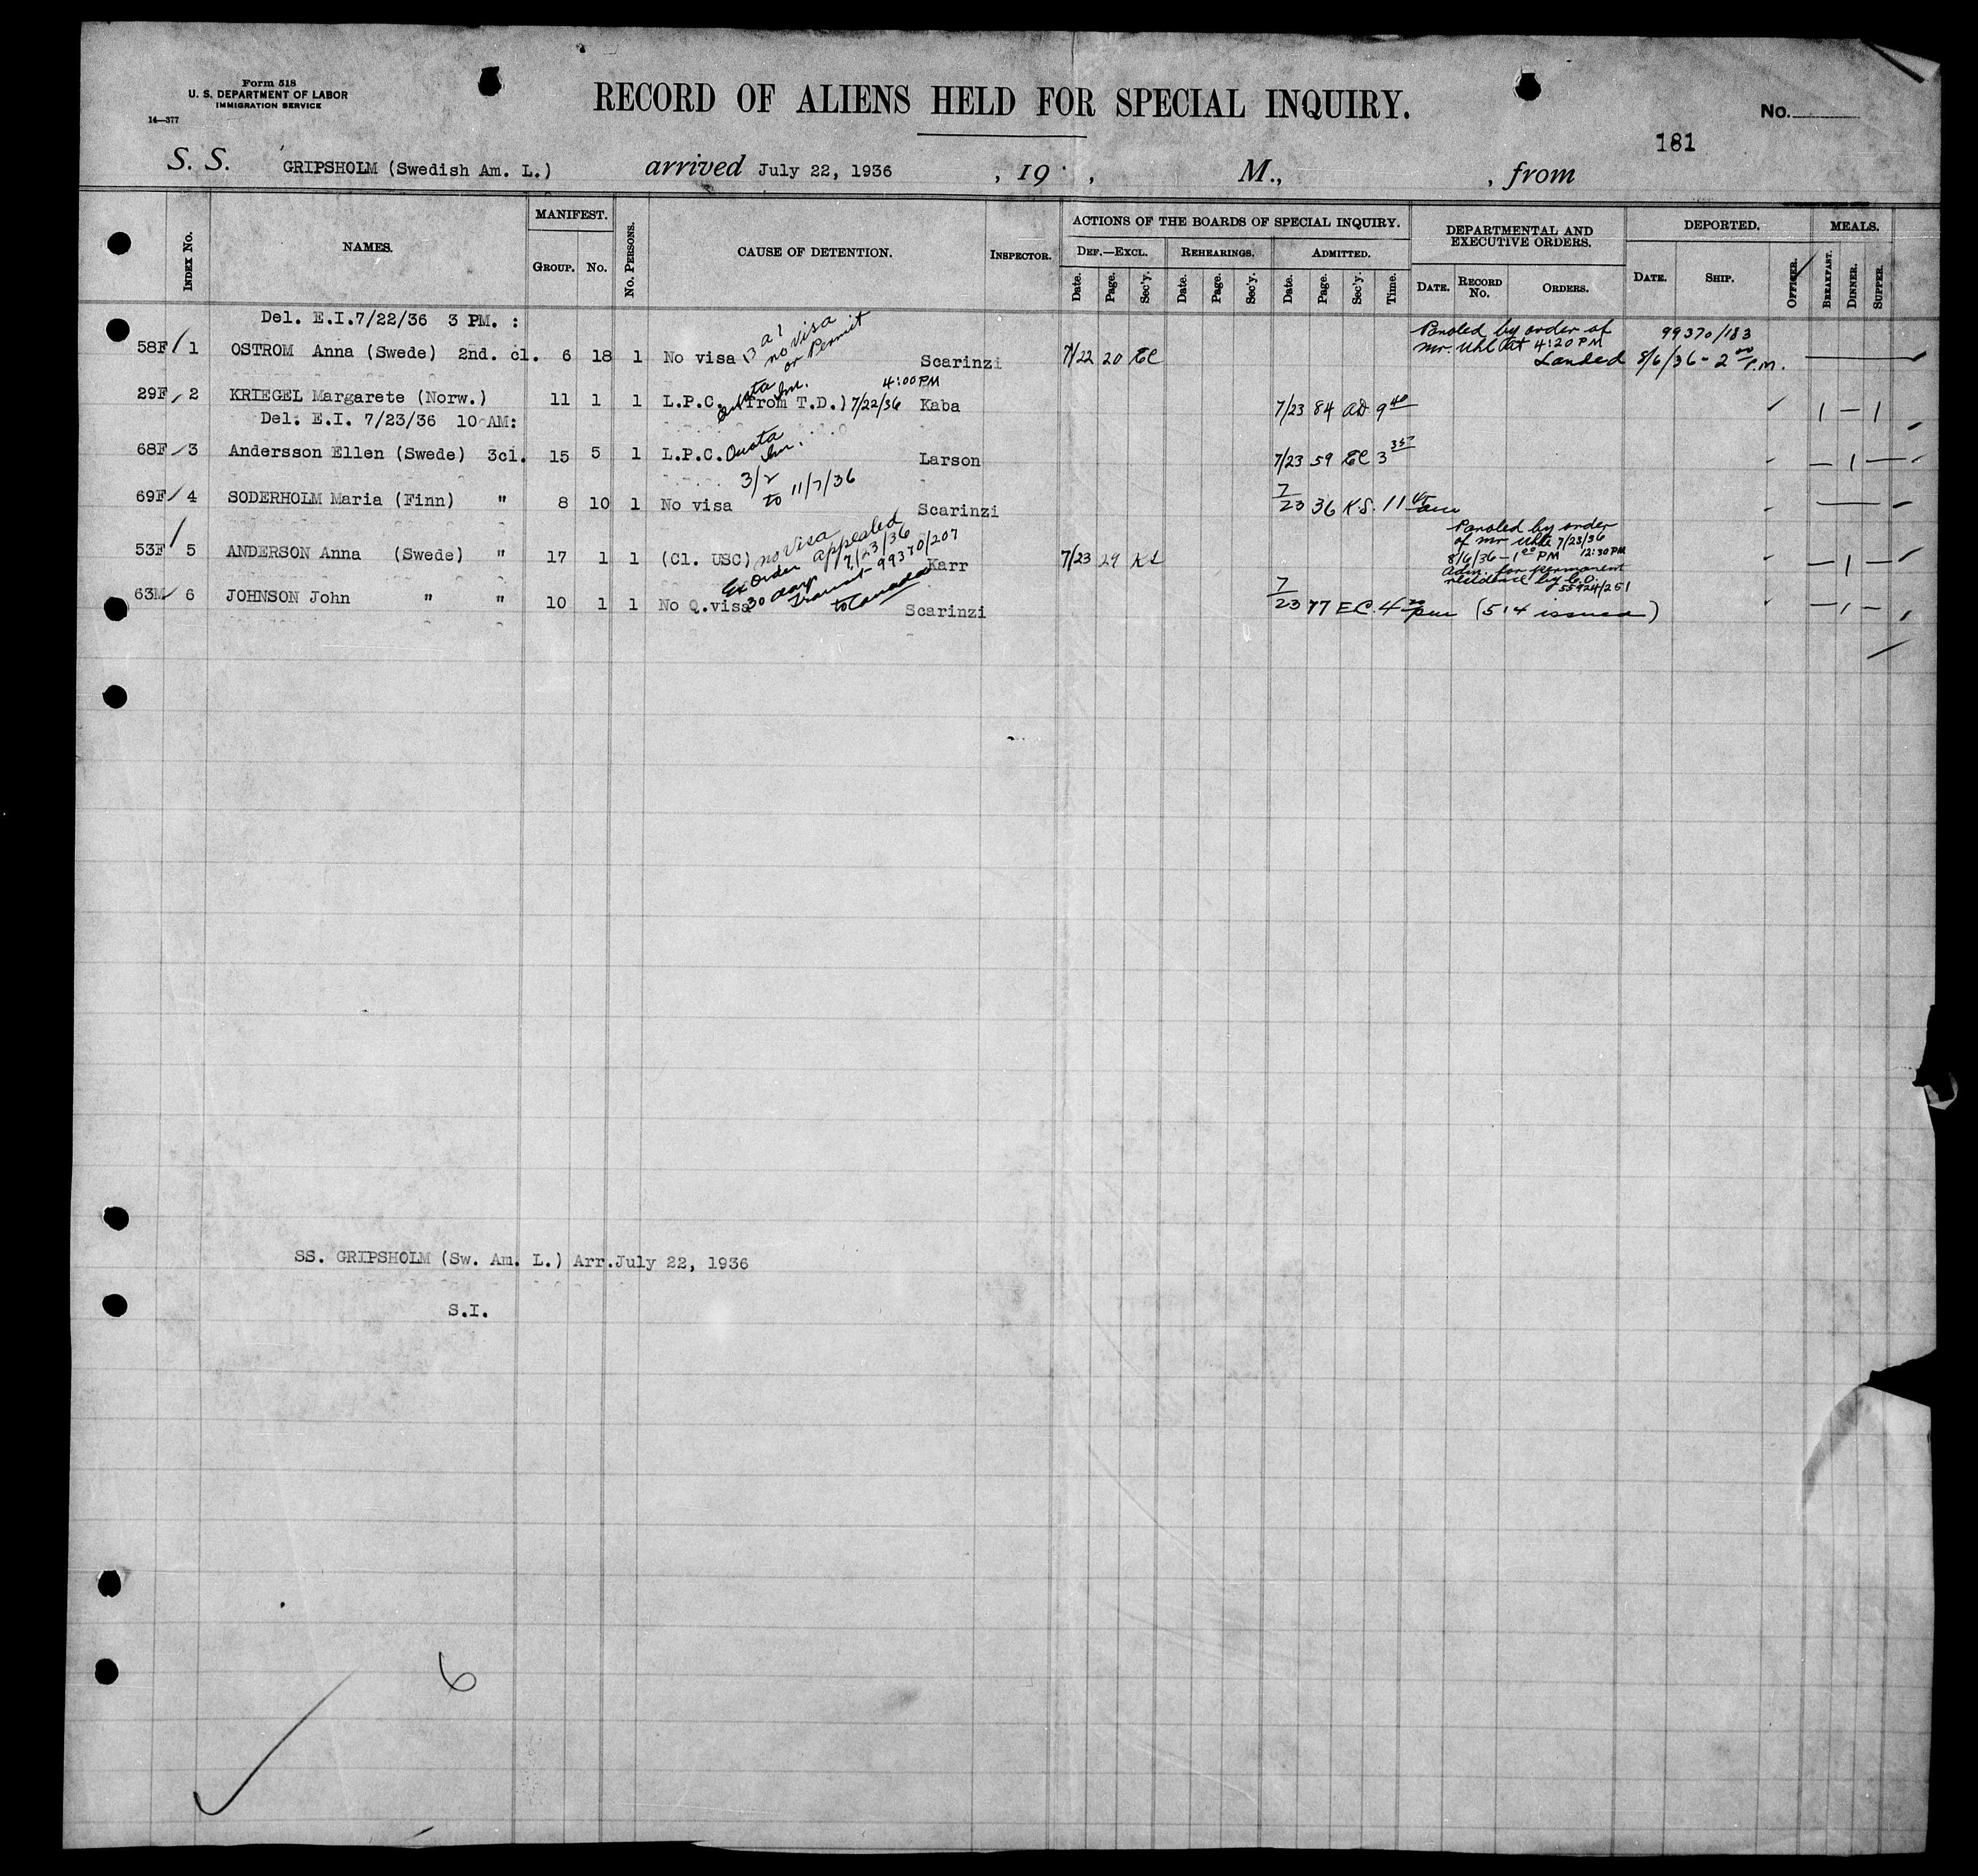 Form 518
U. S. DEPARTMENT OF LABOR
IMMIGRATION SERVICE
14—377
RECORD OF ALIENS HELD FOR SPECIAL INQUIRY.
No.
181
S. S. GRIPSHOLM (Swedish Am. L.) arrived July 22, 1936 , 19 , M., , from
Index No. NAMES. MANIFEST. Group. No. No. Persons. CAUSE OF DETENTION. Inspector. ACTIONS OF THE BOARDS OF SPECIAL INQUIRY. Def.—Excl. Date. Page. Sec'y. Rehearings. Date. Page. Sec'y. Admitted. Date. Page. Sec'y. Time. DEPARTMENTAL AND EXECUTIVE ORDERS. Date. Record No. Orders. DEPORTED. Date. Ship. Officer. MEALS. Breakfast. Dinner. Supper.
Del. E.I.7/22/36 3 PM. :
58F 1 OSTROM Anna (Swede) 2nd. cl. 6 18 1 No visa no visa or Permit Scarinzi 7/22 20 EC Paroled by order of Mr. Uhl at 4:20 PM 99370/183 Landed 8/6/36 - 2 00 P.M.
29F 2 KRIEGEL Margarete (Norw.) 11 1 1 L.P.C. (from T.D.) 7/22/36 4:00 PM Quota Im. Kaba 7/23 84 AD 9 40 1 — 1
Del. E.I. 7/23/36 10 AM:
68F 3 Andersson Ellen (Swede) 3cl. 15 5 1 L.P.C. Quota Im. Larson 7/23 59 EC 3 35 — 1 —
69F 4 SODERHOLM Maria (Finn) " 8 10 1 No visa 3/2 to 11/7/36 Scarinzi 7/23 36 K.S. 11 45 am
53F 5 ANDERSON Anna (Swede) " 17 1 1 (Cl. USC) no visa Ex Order appealed 7/23/36 99370/207 Karr 7/23 29 KS Paroled by order of Mr Uhl 7/23/36 12:30 PM 8/6/36 - 1 00 PM Adm. for permanent residence by C.O. 55924/251 — 1 —
63M 6 JOHNSON John " " 10 1 1 No Q.visa 30 days Transit to Canada Scarinzi 7/23 77 E.C. 4 20 pm (514 issued) — 1 —
SS. GRIPSHOLM (Sw. Am. L.) Arr.July 22, 1936
S.I.
6